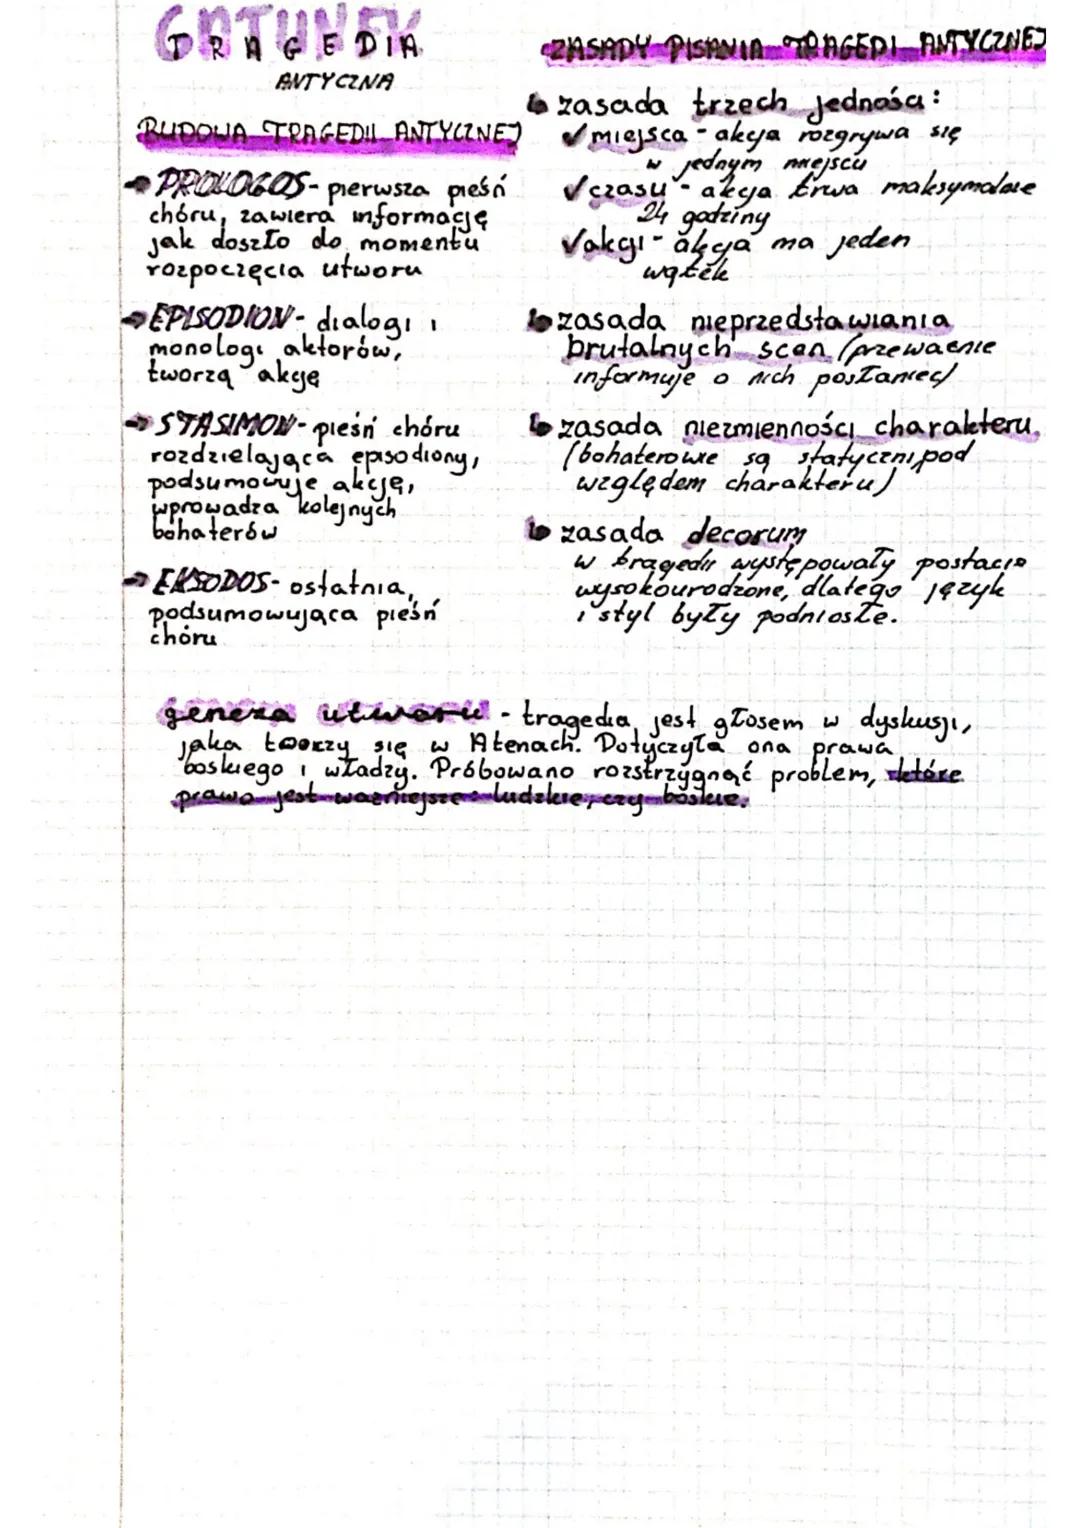 GATUNEK
TRAGEDIA
ANTYCZNA
BUDOWA TRAGEDII ANTYCZNEJ
→ PROLOGOS - pierwsza pieśń
chóru, zawiera informację
jak doszło do momentu
rozpoczęcia utworu
→ EPISODION - dialogi i
monologi aktorów,
tworzą akcję
→ STASIMON - pieśń chóru
rozdzielająca episodiony,
podsumowuje akcję,
wprowadza kolejnych
bohaterów
→ EKSODOS - ostatnia,
podsumowująca pieśń
chóru
ZASADY PISANIA TRAGEDI ANTYCZNEJ
↳ zasada trzech jedności:
✓ miejsca - akcja rozgrywa się
w jednym miejscu
✓ czasu - akcja trwa maksymalnie
24 godziny
✓ akcji - akcja ma jeden
wątek
↳ zasada nieprzedstawiania
brutalnych scen (przeważnie
informuje o nich posłaniec)
↳ zasada niezmienności charakteru
(bohaterowie są statyczni pod
względem charakteru)
↳ zasada decorum
w tragedii występowały postacie
wysokourodzone, dlatego język
i styl były podniosłe.
geneza utworu - tragedia jest głosem w dyskusji,
jaka toczy się w Atenach. Dotyczyła ona prawa
boskiego i władzy. Próbowano rozstrzygnąć problem, które
prawo jest ważniejsze: ludzkie, czy boskie.